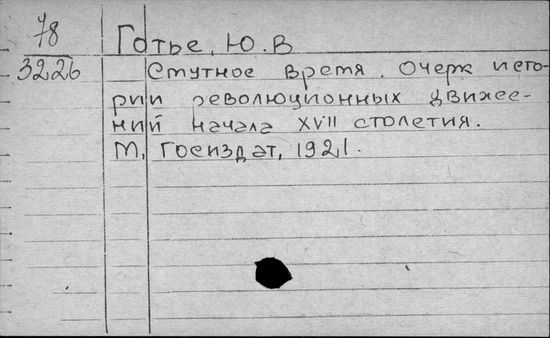 78
3226
Готье, Ю.В
Смутное время. Очерк исто-
рии революционных движе-
ний начала XVII столетия.
М, Госиздат, 1921.